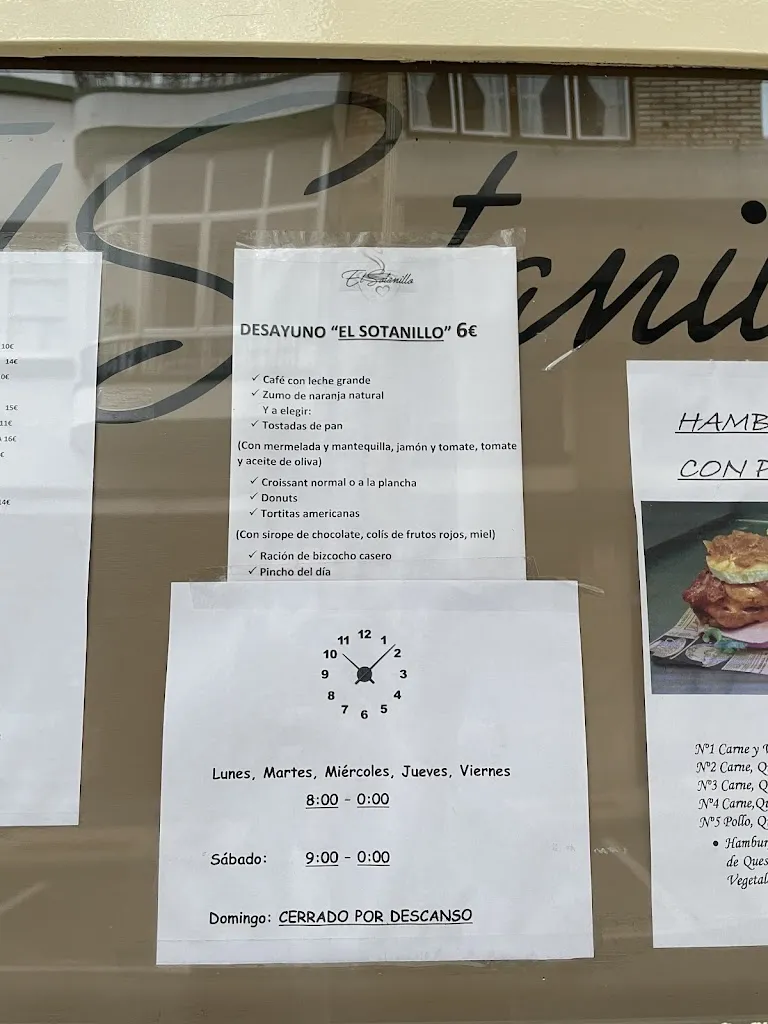 El Sotanillo
10€
14€
0€
15€
11€
16€
€
14€
El Sotanillo
DESAYUNO “EL SOTANILLO” 6€
✓ Café con leche grande
✓ Zumo de naranja natural
Y a elegir:
✓ Tostadas de pan
(Con mermelada y mantequilla, jamón y tomate, tomate
y aceite de oliva)
✓ Croissant normal o a la plancha
✓ Donuts
✓ Tortitas americanas
(Con sirope de chocolate, colís de frutos rojos, miel)
✓ Ración de bizcocho casero
✓ Pincho del día
12
11 1
10 2
9 3
8 4
7 5
6
Lunes, Martes, Miércoles, Jueves, Viernes
8:00 - 0:00
Sábado: 9:00 - 0:00
Domingo: CERRADO POR DESCANSO
HAMB
CON P
Nº1 Carne y
Nº2 Carne, Q
Nº3 Carne, Q
Nº4 Carne,Qu
Nº5 Pollo, Q
• Hambur
de Ques
Vegetal